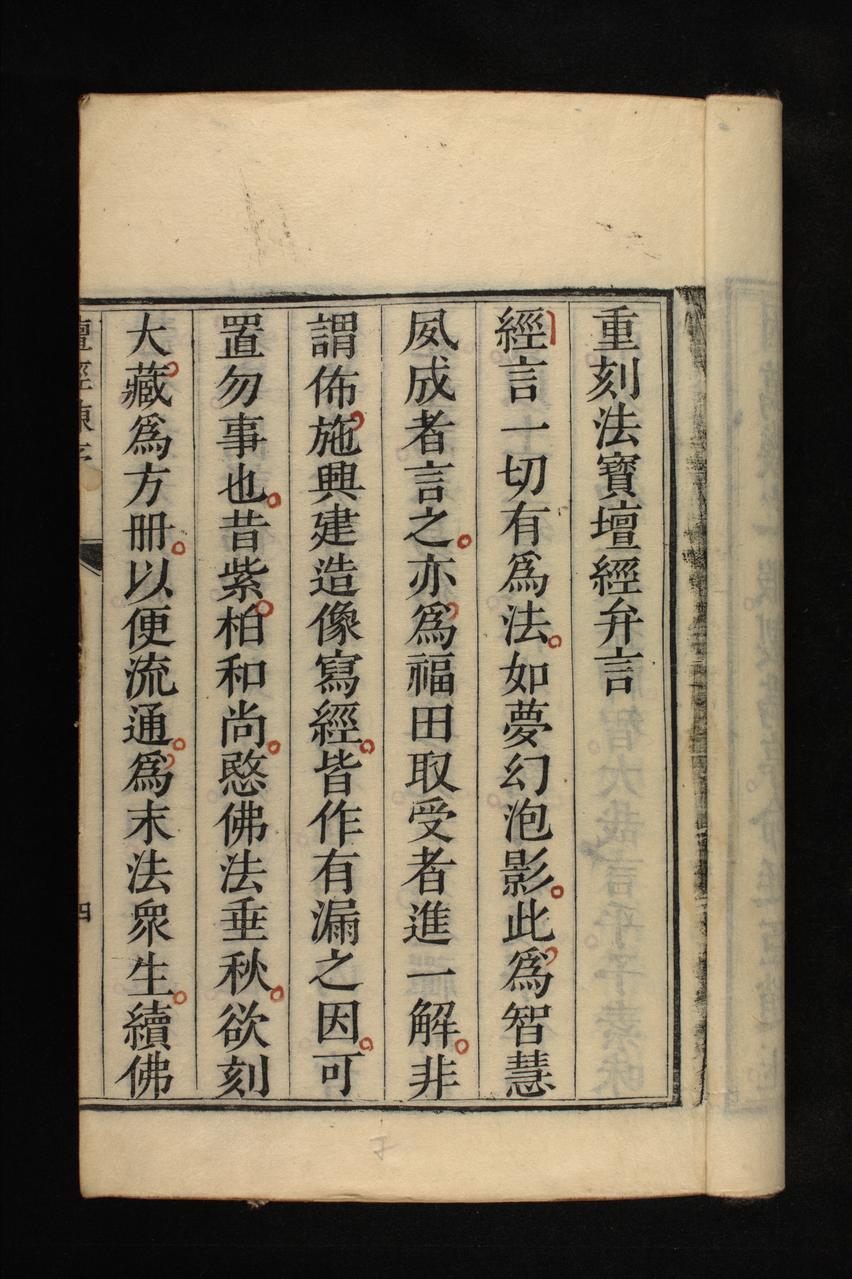 重刻法寶壇經弁言
經言一切有爲法。如夢幻泡影。此爲智慧
夙成者言之。亦爲福田取受者進一解。非
謂佈施興建造像寫經。皆作有漏之因。可
置勿事也。昔紫柏和尚。愍佛法垂秋。欲刻
大藏爲方冊。以便流通。爲末法衆生。續佛
壇經陳序
四